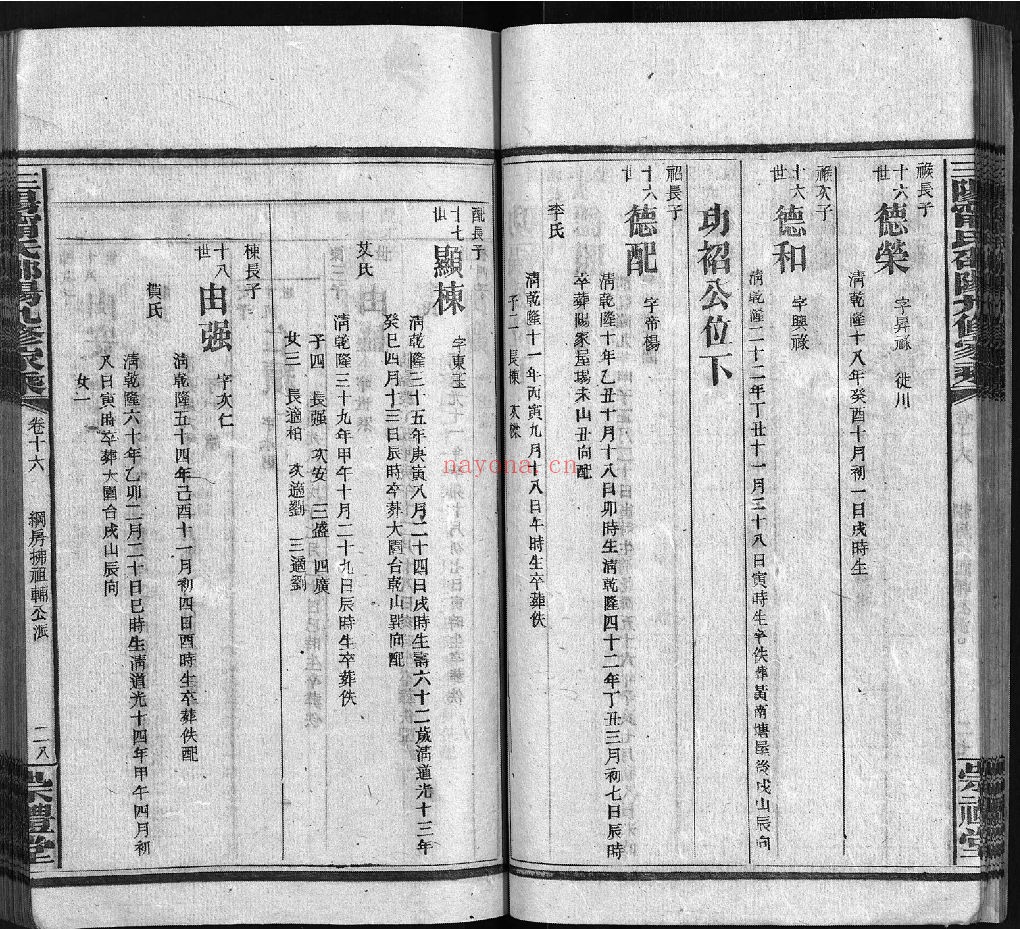 祿長子
十六世
德榮
字昇祿 徙川
清乾隆十八年癸酉十月初一日戌時生
祿次子
十六世
德和
字興祿
清乾隆二十二年丁丑十一月二十八日寅時生卒佚葬黃南塘屋後戌山辰向
功祒公位下
祒長子
十六世
德配
字帝楊
清乾隆十年乙丑十月十八日卯時生清乾隆四十二年丁丑三月初七日辰時
卒葬陽家屋場未山丑向配
李氏
清乾隆十一年丙寅九月十八日午時生卒葬佚
子二 長棟 次傑
配長子
十七世
顯棟
字東玉
清乾隆三十五年庚寅八月二十四日戌時生壽六十二歲清道光十三年
癸巳四月十三日辰時卒葬大園台乾山巽向配
艾氏
清乾隆三十九年甲午十月二十九日辰時生卒葬佚
子四 長强 次安 三盛 四廣
女三 長適柏 次適劉 三適劉
棟長子
十八世
由强
字次仁
清乾隆五十四年己酉十一月初四日酉時生卒葬佚配
清乾隆六十年乙卯二月二十日巳時生清道光十四年甲午四月初
八日寅時卒葬大園台戌山辰向
女一
卷十六
二八
崇禮堂
nayona.cn